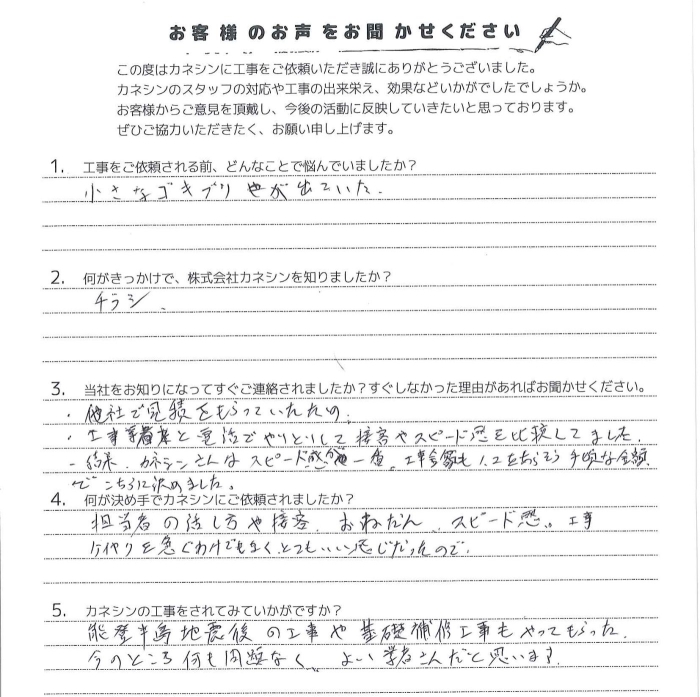 お客様のお声をお聞かせください
この度はカネシンに工事をご依頼いただき誠にありがとうございました。
カネシンのスタッフの対応や工事の出来栄え、効果などいかがでしたでしょうか。
お客様からご意見を頂戴し、今後の活動に反映していきたいと思っております。
ぜひご協力いただきたく、お願い申し上げます。
1. 工事をご依頼される前、どんなことで悩んでいましたか？
小さなゴキブリ が出ていた.
2. 何がきっかけで、株式会社カネシンを知りましたか？
チラシ.
3. 当社をお知りになってすぐご連絡されましたか？すぐしなかった理由があればお聞かせください。
・他社で見積をもらっていたため.
・工事業者 と電話でやりとりして接客やスピード感を比較してました.
・結果. カネシンさんはスピード感 一番. 工事金額も 手頃な金額
でこちらに決めました。
4. 何が決め手でカネシンにご依頼されましたか？
担当者の話し方や接客. おねだん. スピード感。工事
を急ぐわけでもなく、とてもいい感じだったので.
5. カネシンの工事をされてみていかがですか？
能登半島地震後の工事や基礎補修工事もやってもらった.
今のところ何も問題なく、よい業者さんだと思います.